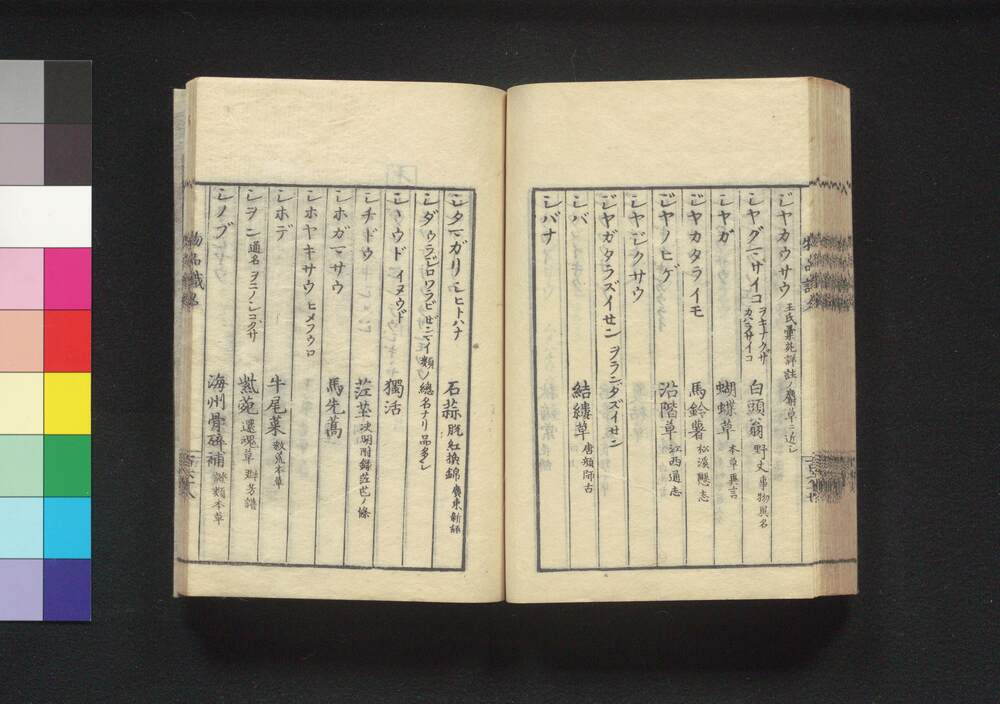 ジヤカウサウ 王氏彙苑詳註ノ麝草ニ近シ
シヤグマサイコ ヲキナグサ カハラサイコ 白頭翁 野丈 事物異名
シヤガ 蝴蝶草 本草異言
ジヤカタライモ 馬鈴薯 松溪縣志
ジヤノヒゲ 沿階草 江西通志
シヤジクサウ
ジヤガタラズイセン ヲランダズイセン
シバ 結縷草 唐顔師古
シバナ
シタマガリ シヒトハナ 石蒜 脱紅換錦 廣東新語
シダ ウラジロワラビゼンマイ類ノ總名ナリ品多シ
シヽウド イヌウド 獨活
シチトウ 茳茎 决明附録茳芒ノ條
シホガマサウ 馬先蒿
シホヤキサウ ヒメフウロ
シホデ 牛尾菜 救荒本草
シヲン 通名 ヲニノシコグサ 紫菀 還魂草 群芳譜
シノブ 海州骨碎補 證類本草
物品識名